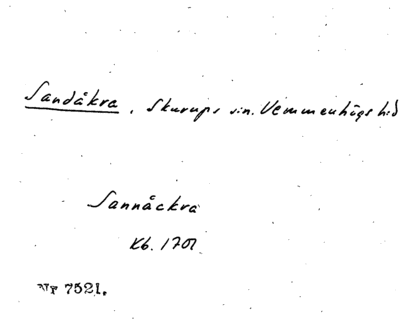 Sandåkra, Skurups sn. Vemmenhögs hd
Sannåckra
Kb. 1701
Nr 7521.